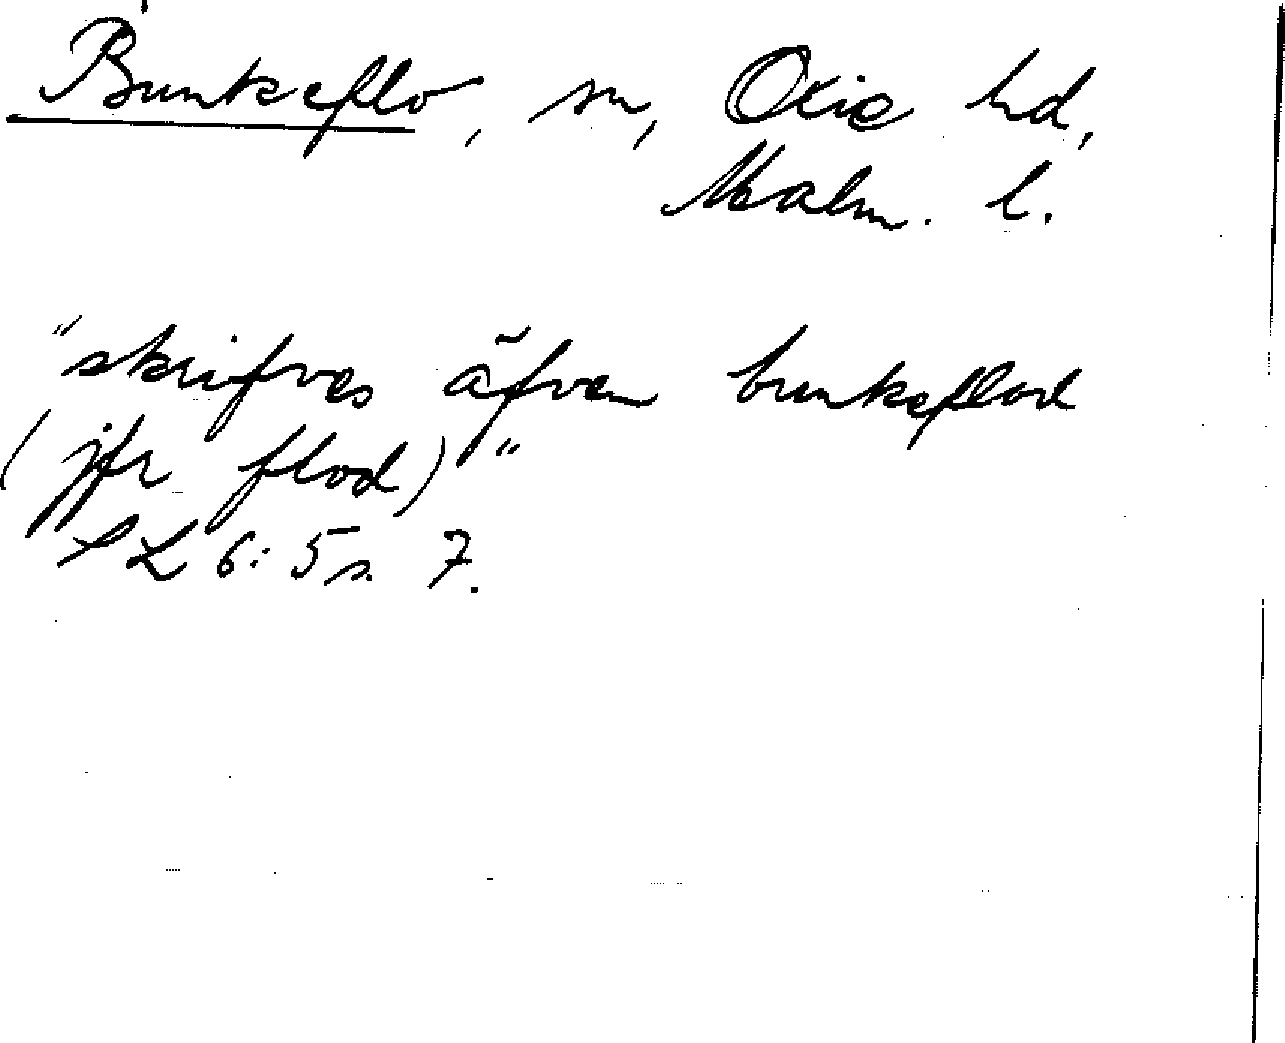 Bunkeflo, sn, Oxie hd,
Malm. l.
"skrifves äfven bunkeflod
(jfr flod)"
SL 6: 5 s. 7.